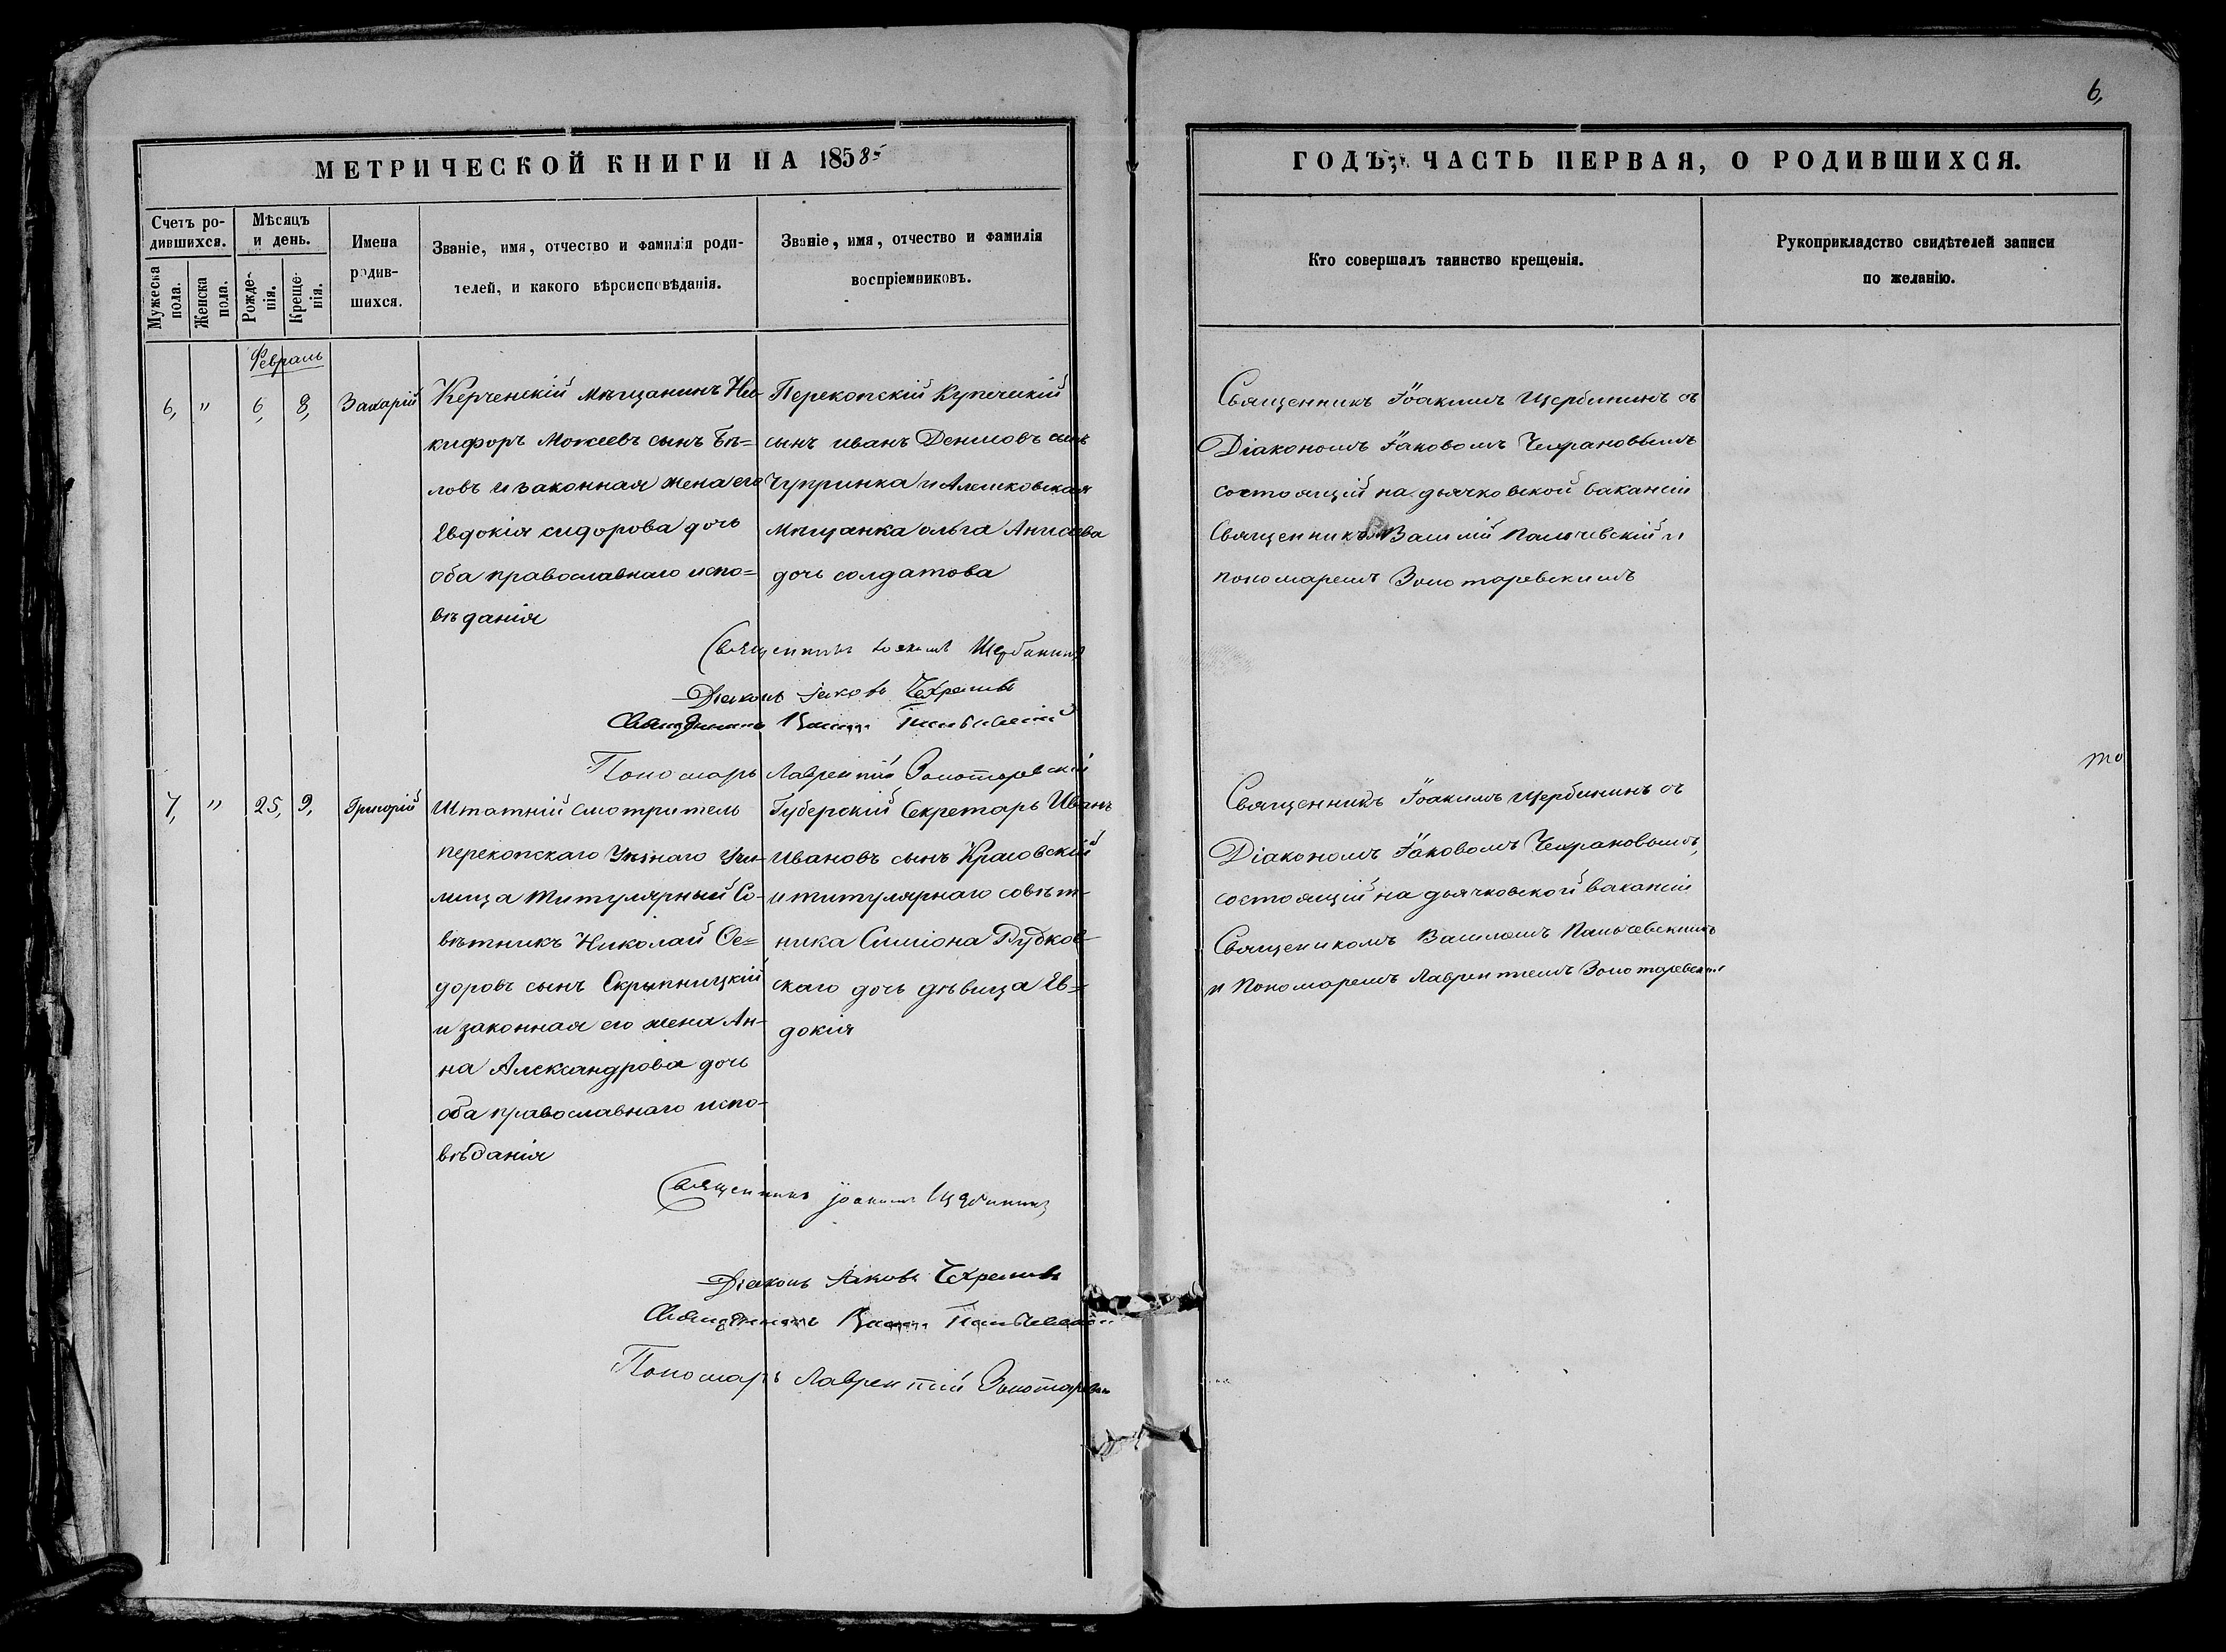 6,
МЕТРИЧЕСКОЙ КНИГИ НА 1858
ГОДЪ, ЧАСТЬ ПЕРВАЯ, О РОДИВШИХСЯ.
Счетъ ро-
дившихся.
Мужеска пола.
Женска пола.
Мѣсяцъ
и день.
Рожде-
нія.
Креще-
нія.
Имена
родив-
шихся.
Званіе, имя, отчество и фамилія роди-
телей, и какого вѣроисповѣданія.
Званіе, имя, отчество и фамилія
воспріемниковъ.
Кто совершалъ таинство крещенія.
Рукоприкладство свидѣтелей записи
по желанію.
Февраль
6, " 6, 8, Захарій
Керченскій мѣщанинъ Ни-
кифоръ Моисеевъ сынъ Бѣ=
ловъ и законная жена его
Евдокія сидорова дочь
оба православнаго испо=
вѣданія
Перекопскій Купеческій
сынъ иванъ Денисовъ сынъ
Чупринка и Алешковская
мѣщанка ольга
дочь солдатова
Священникъ Іоакимъ Щербининъ съ
Діакономъ Іаковомъ Чехрановымъ
состоящій на дьячковской вакансіи
Священникъ Василій Пальчевскій и
пономаремъ Золотаревскимъ
Священникъ Іоакимъ Щербининъ
Діаконъ Іаковъ Чехрановъ
Священникъ Василій Пальчевскій
Пономарь Лаврентій Золотаревскій
7, " 25, 9, Григорій
Штатній смотритель
перекопскаго Учи-
лища Титулярный Со-
вѣтникъ Николай Ѳе=
доровъ сынъ Скрыпницкій
и законная его жена Ан-
на Александрова дочь
оба православнаго испо-
вѣданія
Губерскій Секретарь Иванъ
Ивановъ сынъ Красовскій
и титулярнаго совѣт-
ника Симіона Рубков-
скаго дочь дѣвица Ев=
докія
то
Священникъ Іоакимъ Щербининъ съ
Діакономъ Іаковомъ Чехрановымъ,
состоящій на дьячковской вакансіи
Священикомъ Василіемъ Пальчевскимъ
и Пономаремъ Лаврентіемъ Золотаревскимъ
Священникъ Іоакимъ Щербининъ
Діаконъ Іаковъ Чехрановъ
Священникъ Василій Пальчевскій
Пономарь Лаврентій Золотаревскій